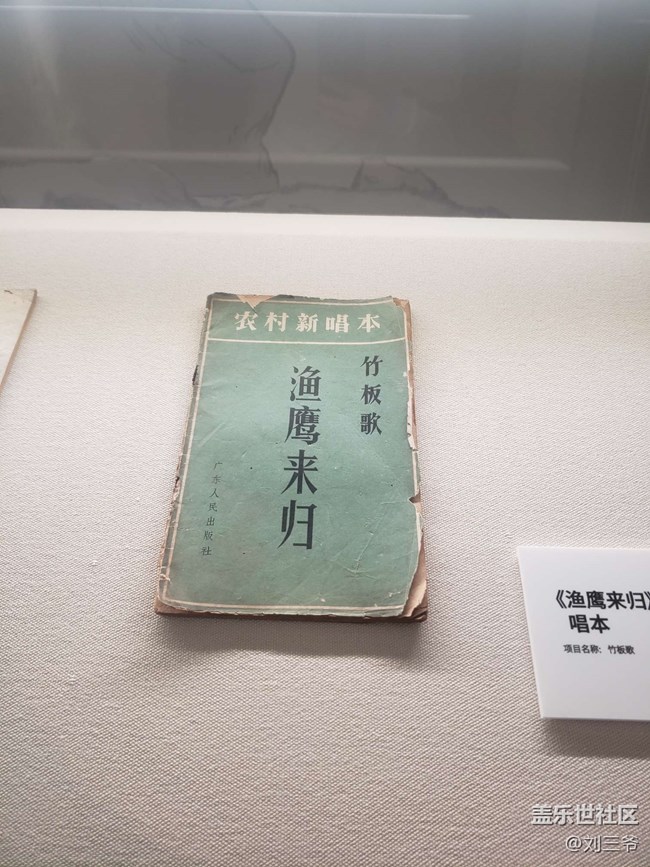 农村新唱本
竹板歌
渔鹰来归
广东人民出版社
《渔鹰来归》
唱本
项目名称：竹板歌
盖乐世社区
@刘三爷